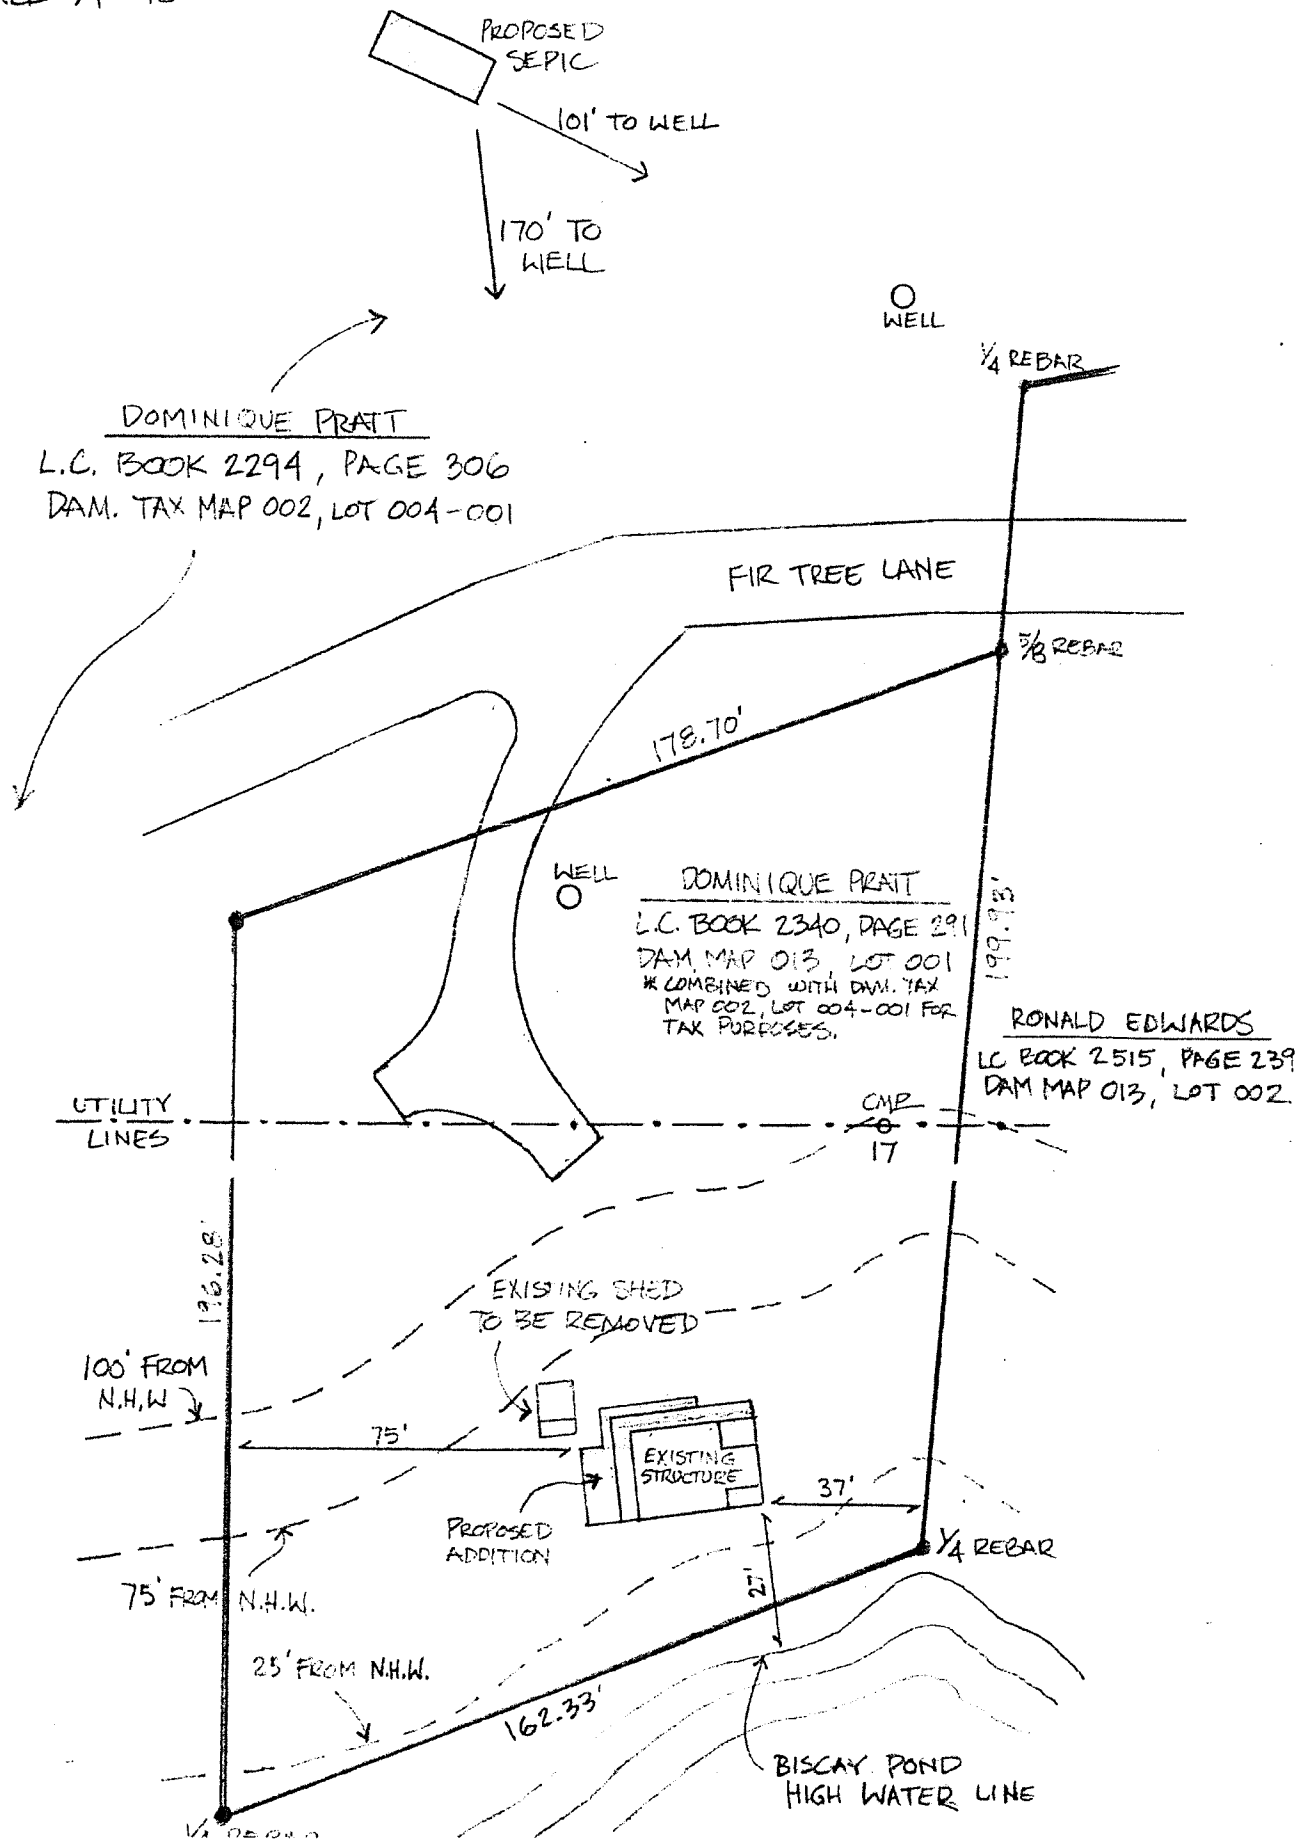 PROPOSED
SEPIC
101' TO WELL
170' TO
WELL
WELL
1/4 REBAR
DOMINIQUE PRATT
L.C. BOOK 2294, PAGE 306
DAM. TAX MAP 002, LOT 004-001
FIR TREE LANE
5/8 REBAR
178.70'
WELL
DOMINIQUE PRATT
L.C. BOOK 2340, PAGE 291
DAM. MAP 013, LOT 001
* COMBINED WITH DAM. TAX
MAP 002, LOT 004-001 FOR
TAX PURPOSES.
199.93'
RONALD EDWARDS
LC BOOK 2515, PAGE 239
DAM MAP 013, LOT 002.
UTILITY
LINES
CMP
17
196.28'
EXISTING SHED
TO BE REMOVED
100' FROM
N.H.W
75'
EXISTING
STRUCTURE
37'
PROPOSED
ADDITION
1/4 REBAR
27'
75' FROM N.H.W.
25' FROM N.H.W.
162.33'
BISCAY POND
HIGH WATER LINE
1/4 REBAR